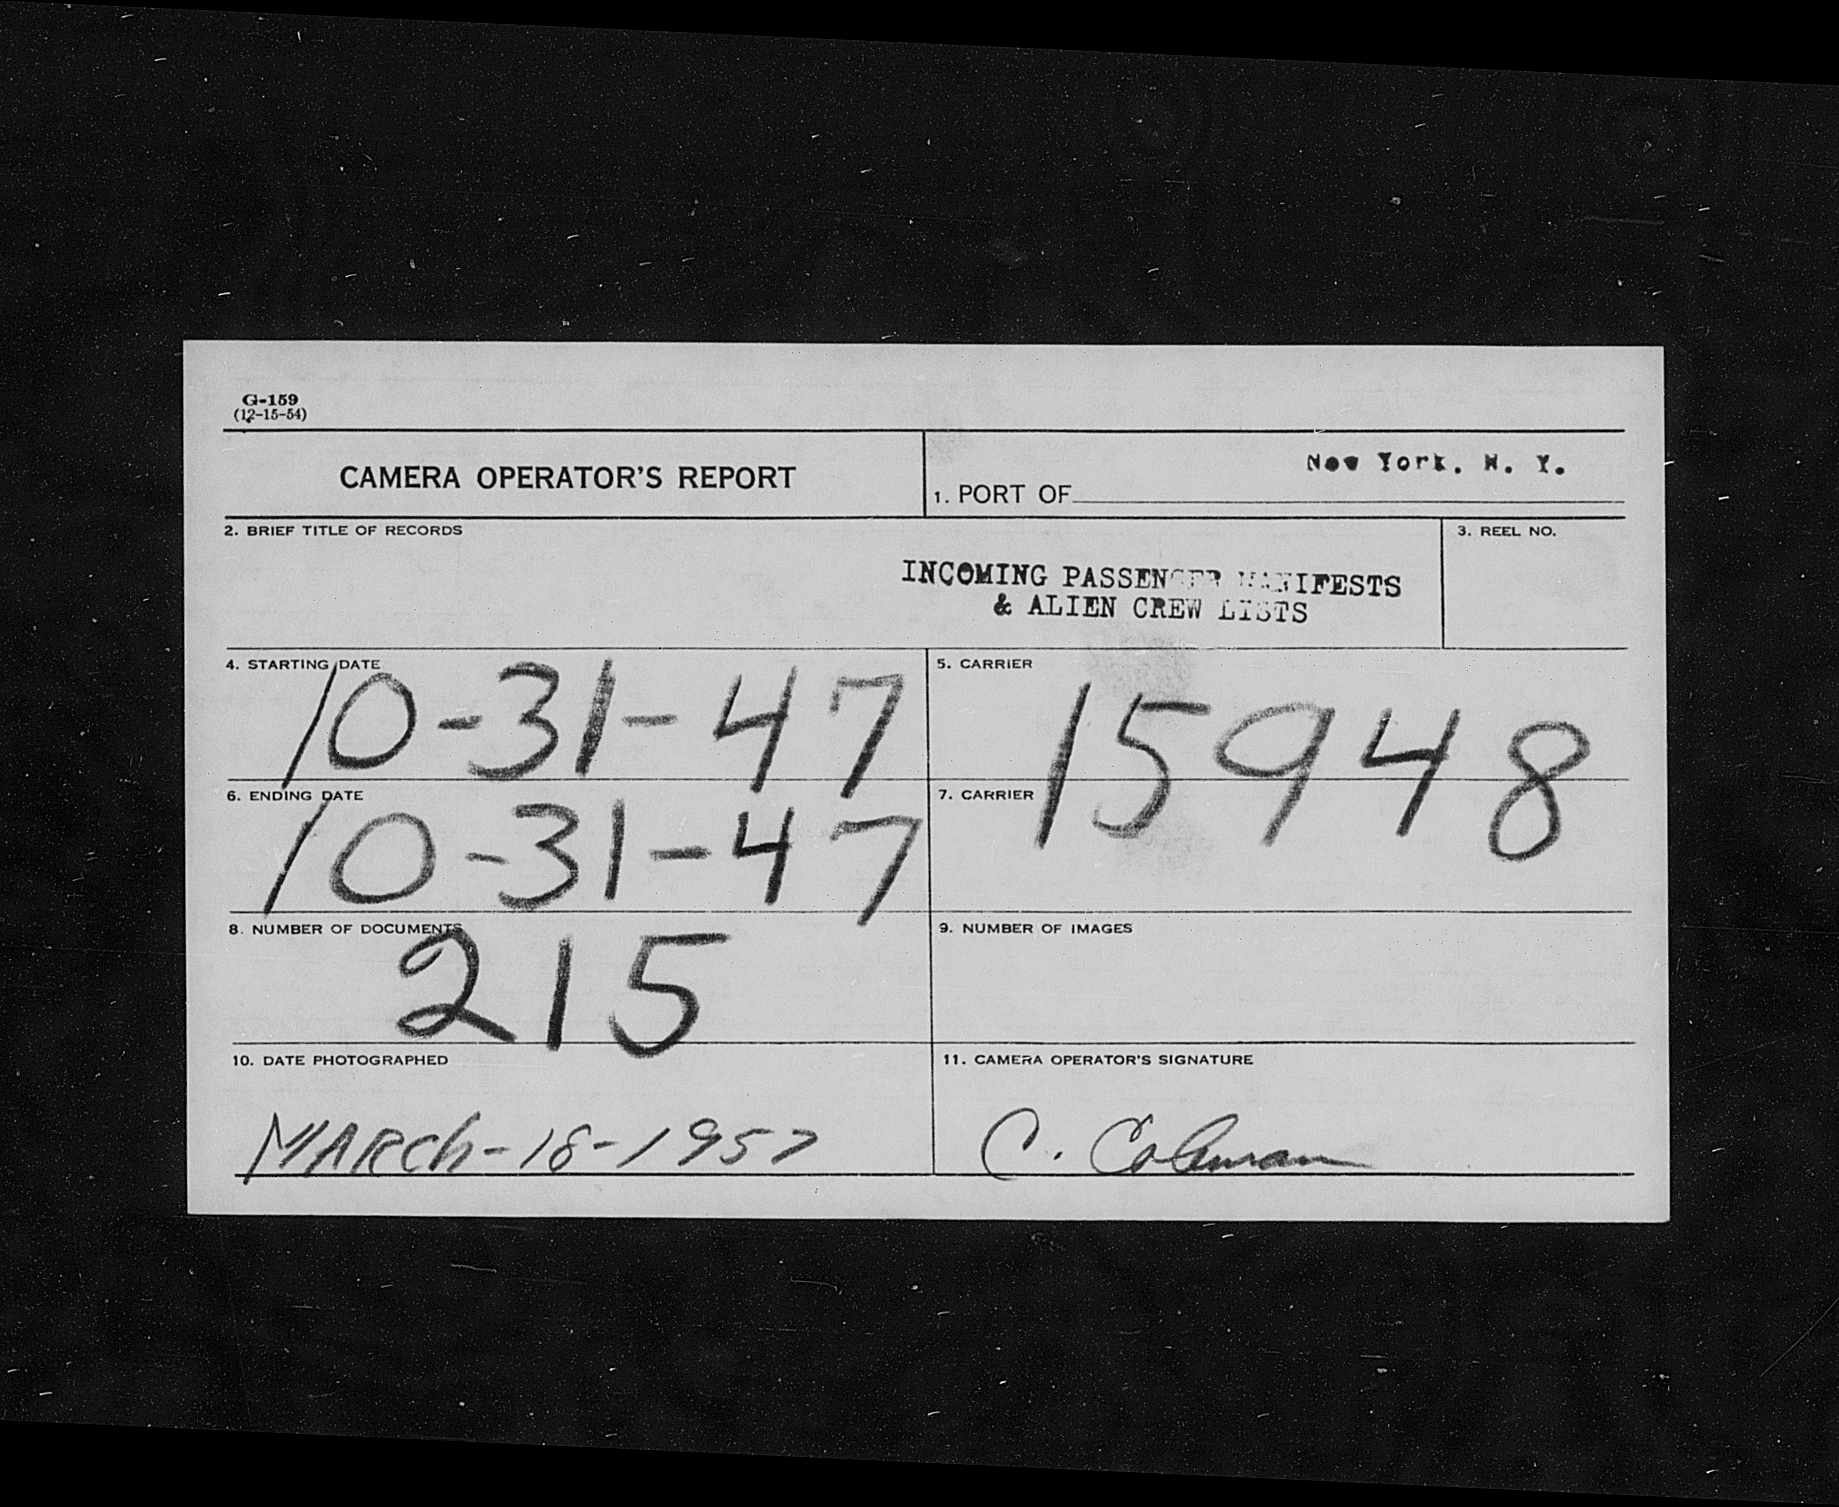 G-159
(12-15-54)
CAMERA OPERATOR'S REPORT
1. PORT OF New York. N. Y.
2. BRIEF TITLE OF RECORDS
INCOMING PASSENGER MANIFESTS
& ALIEN CREW LISTS
3. REEL NO.
4. STARTING DATE
10-31-47
5. CARRIER
15948
6. ENDING DATE
10-31-47
7. CARRIER
8. NUMBER OF DOCUMENTS
215
9. NUMBER OF IMAGES
10. DATE PHOTOGRAPHED
MARCh-18-1957
11. CAMERA OPERATOR'S SIGNATURE
C. Coleman